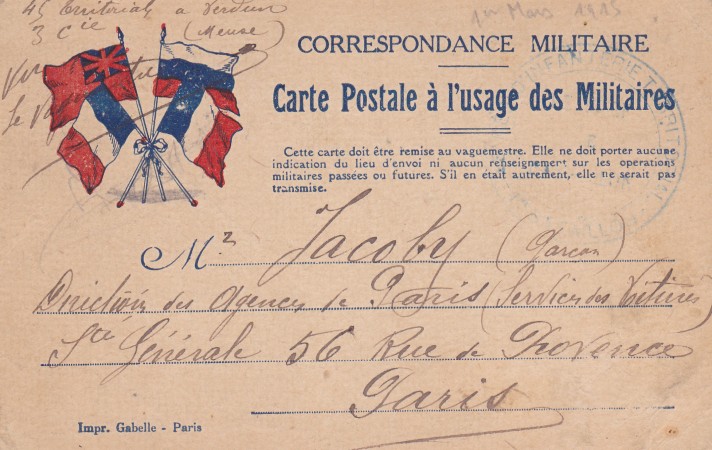 45 Territorial à Verdun
3 Cie (Meuse)
1er Mars 1915
Vu
Le
CORRESPONDANCE MILITAIRE
Carte Postale à l'usage des Militaires
Cette carte doit être remise au vaguemestre. Elle ne doit porter aucune
indication du lieu d'envoi ni aucun renseignement sur les opérations
militaires passées ou futures. S'il en était autrement, elle ne serait pas
transmise.
INFANTERIE TERRITORIAL
Mr Jacoby (garçon)
Direction des Agences de Paris (Service des Titres)
Sté Générale 56 Rue de Provence
Paris
Impr. Gabelle - Paris